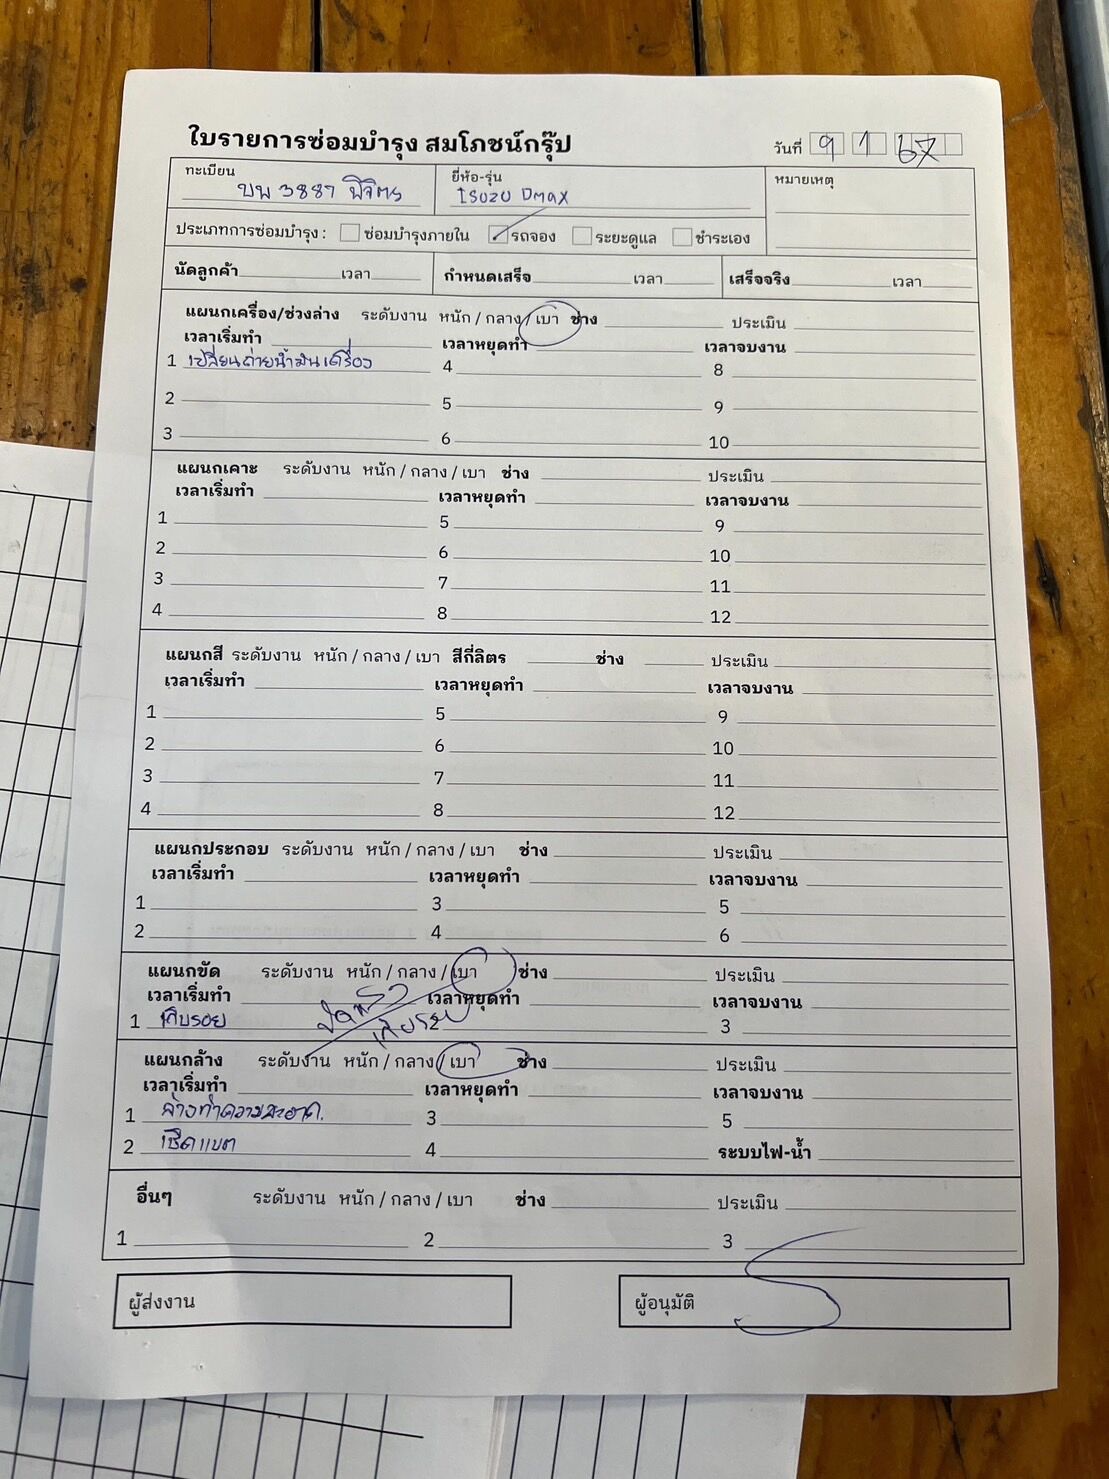 ใบรายการซ่อมบำรุง สมโภชน์กรุ๊ป
วันที่ 9 1 67
ทะเบียน ยี่ห้อ-รุ่น หมายเหตุ
บพ 3887 พิจิตร ISUZU Dmax
ประเภทการซ่อมบำรุง : ซ่อมบำรุงภายใน รถจอง ระยะดูแล ชำระเอง
นัดลูกค้า เวลา กำหนดเสร็จ เวลา เสร็จจริง เวลา
แผนกเครื่อง/ช่วงล่าง ระดับงาน หนัก / กลาง / เบา ช่าง ประเมิน
เวลาเริ่มทำ เวลาหยุดทำ เวลาจบงาน
1 เปลี่ยนถ่ายน้ำมันเครื่อง 4 8
2 5 9
3 6 10
แผนกเคาะ ระดับงาน หนัก / กลาง / เบา ช่าง ประเมิน
เวลาเริ่มทำ เวลาหยุดทำ เวลาจบงาน
1 5 9
2 6 10
3 7 11
4 8 12
แผนกสี ระดับงาน หนัก / กลาง / เบา สีกี่ลิตร ช่าง ประเมิน
เวลาเริ่มทำ เวลาหยุดทำ เวลาจบงาน
1 5 9
2 6 10
3 7 11
4 8 12
แผนกประกอบ ระดับงาน หนัก / กลาง / เบา ช่าง ประเมิน
เวลาเริ่มทำ เวลาหยุดทำ เวลาจบงาน
1 3 5
2 4 6
แผนกขัด ระดับงาน หนัก / กลาง / เบา ช่าง ประเมิน
เวลาเริ่มทำ เวลาหยุดทำ เวลาจบงาน
1 เก็บรอย 2 3
แผนกล้าง ระดับงาน หนัก / กลาง / เบา ช่าง ประเมิน
เวลาเริ่มทำ เวลาหยุดทำ เวลาจบงาน
1 ล้างทำความสะอาด. 3 5
2 เช็คแบต 4 ระบบไฟ-น้ำ
อื่นๆ ระดับงาน หนัก / กลาง / เบา ช่าง ประเมิน
1 2 3
ผู้ส่งงาน ผู้อนุมัติ